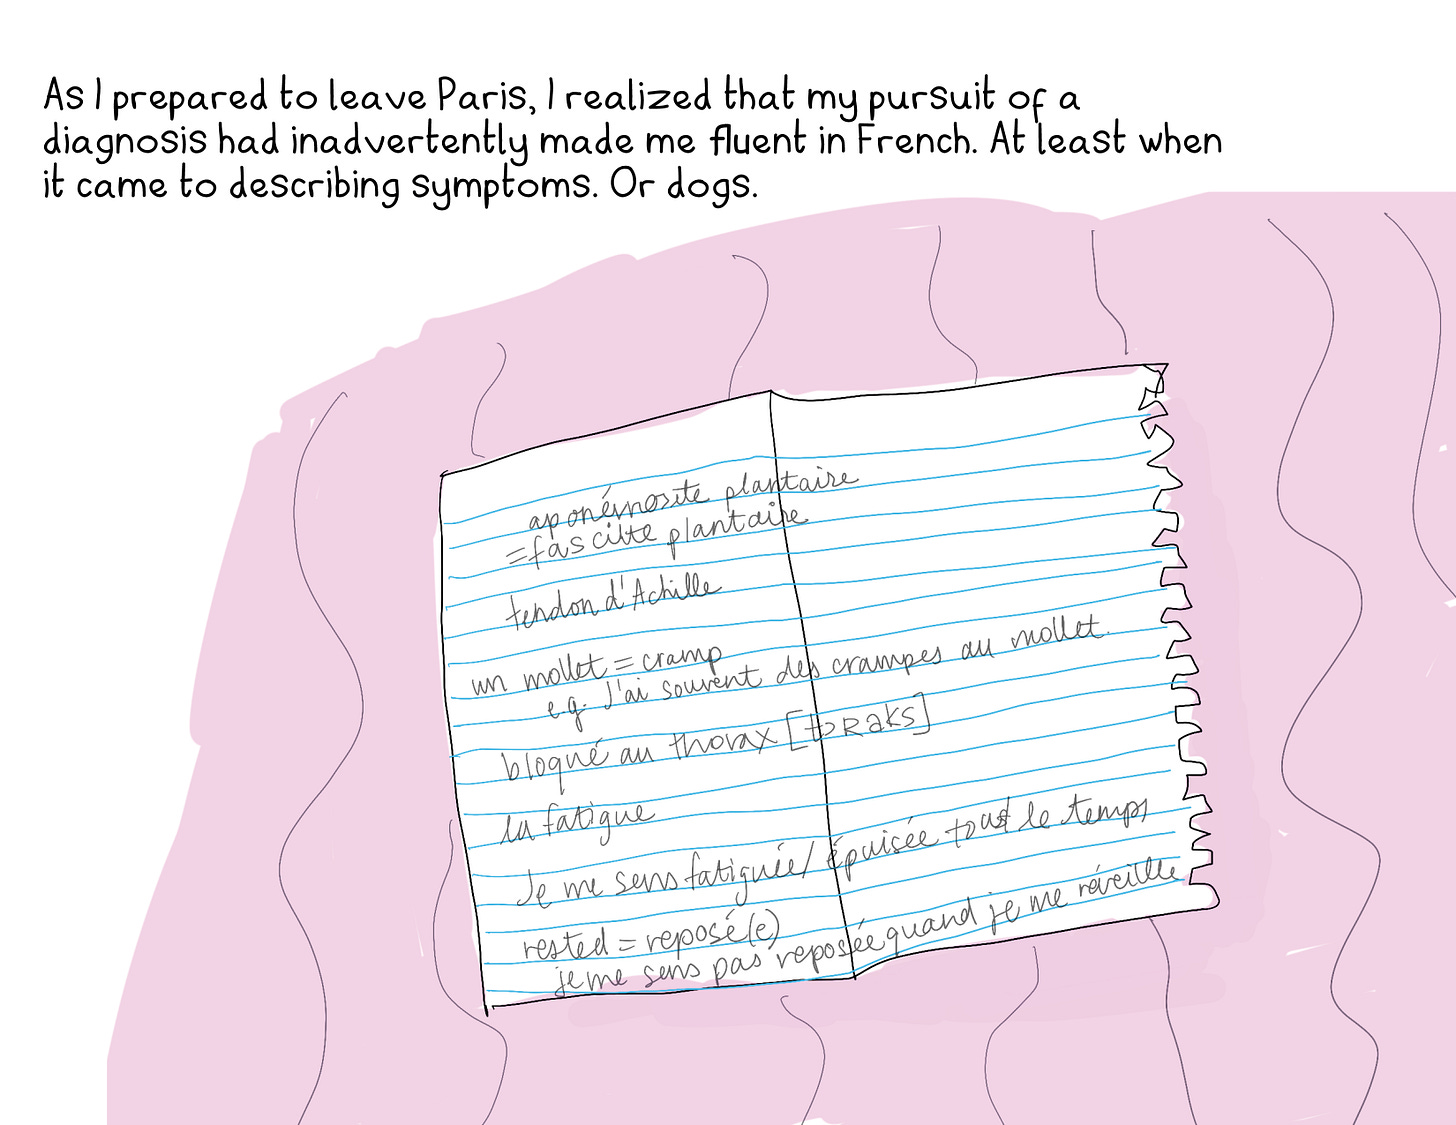 As I prepared to leave Paris, I realized that my pursuit of a
diagnosis had inadvertently made me fluent in French. At least when
it came to describing symptoms. Or dogs.
aponévrosite plantaire
=fasciite plantaire
tendon d'Achille
un mollet = cramp
e.g. J'ai souvent des crampes au mollet.
bloqué au thorax [tɔRaks]
la fatigue
Je me sens fatiguée/épuisée tout le temps
rested = reposé(e)
je me sens pas reposée quand je me réveille